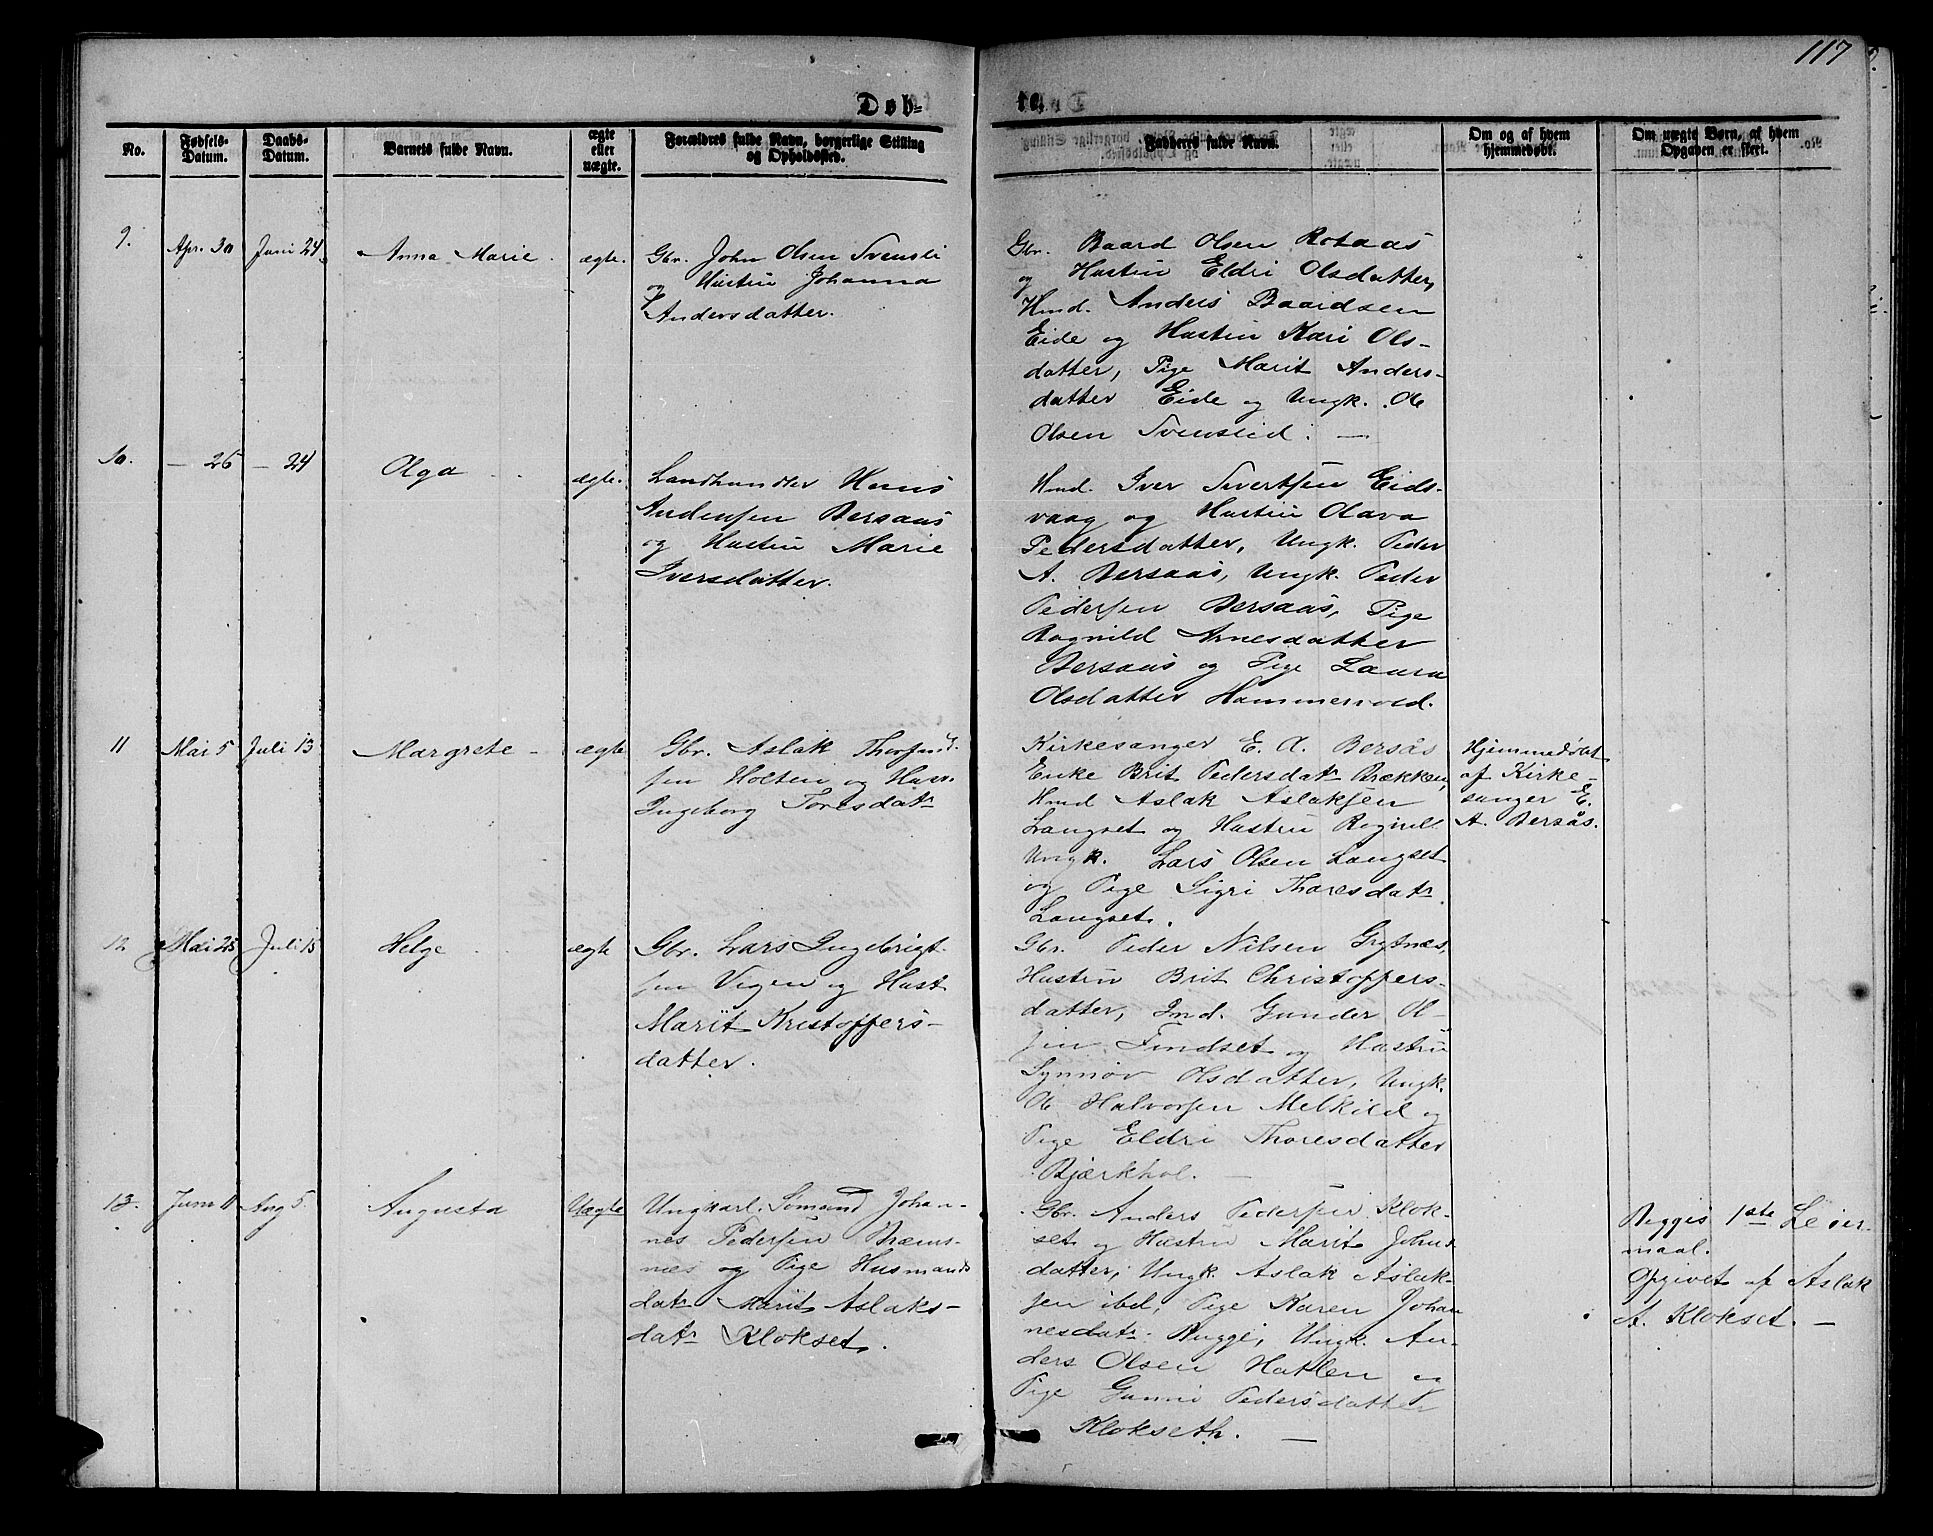 117
Døb-
te.
No.
Fødsels-
Datum.
Daabs-
Datum.
Barnets fulde Navn.
ægte
eller
uægte.
Forældres fulde Navn, borgerlige Stilling
og Opholdssted.
Fadderes fulde Navn.
Om og af hvem
hjemmedøbt.
Om uægte Børn, af hvem
Opgaven er skeet.
9.
Apr. 30
Juni 24
Anna Marie.
ægte.
Gbr. John Olsen Svensli
og Hustru Johanna
Andersdatter.
Gbr. Baard Olsen Rotaas
og Hustru Eldri Olsdatter,
Hmd. Anders Baardsen
Eide og Hustru Kari Ols-
datter, Pige Marit Anders-
datter Eide og Ungk. Ole
Olsen Svenslid. —
10.
— 26
— 24
Olga
ægte.
Landhandler Hans
Andersen Bersaas
og Hustru Marie
Iversdatter.
Hmd. Iver Sivertsen Eids-
vaag og Hustru Olava
Pedersdatter, Ungk. Peder
A. Bersaas, Ungk. Peder
Pedersen Bersaas, Pige
Ragnild Arnesdatter
Bersaas og Pige Laura
Olsdatter Hammervold.
11
Mai 5
Juli 13
Margrete —
ægte
Gbr. Aslak Thorfind-
sen Holten og Hust.
Ingeborg Toresdatr
Kirkesanger E. A. Bersås
Enke Brit Pedersdatr Brækken,
Hmd Aslak Aslaksen
Langset og Hustru Ragnil
Ungk. Lars Olsen Langset
og Pige Sigri Thoresdatr
Langset.
Hjemmedøbt
af Kirke-
sanger E.
A. Bersås.
12
Mai 25
Juli 15
Helge
ægte
Gbr. Lars Ingebrigt-
sen Vigen og Hust
Marit Kristoffers-
datter.
Gbr. Peder Nilsen Grytnæs,
Hustru Brit Christoffers-
datter, Ind. Gunder Ol-
sen Tindset og Hustru
Synnøv Olsdatter, Ungk.
Ole Halvorsen Melkild og
Pige Eldri Thoresdatter
Bjærkhol. —
13.
Juni 11
Aug 5.
Augusta
Uægte
Ungkarl. Sömand Johan-
nes Pedersen Bræms-
næs og Pige Husmands
datr Marit Aslaks-
datr Klokset.
Gbr. Anders Pedersen Klok-
set og Hustru Marit Johns-
datter, Ungk. Aslak Aslak-
sen ibd, Pige Karen Johan
nesdatr. Bugge, Ungk. An-
ders Olsen Hatlen og
Pige Gunni Pedersdatter
Klokseth. —
Begges 1ste Leier-
maal.
Opgivet af Aslak
A. Klokset. —